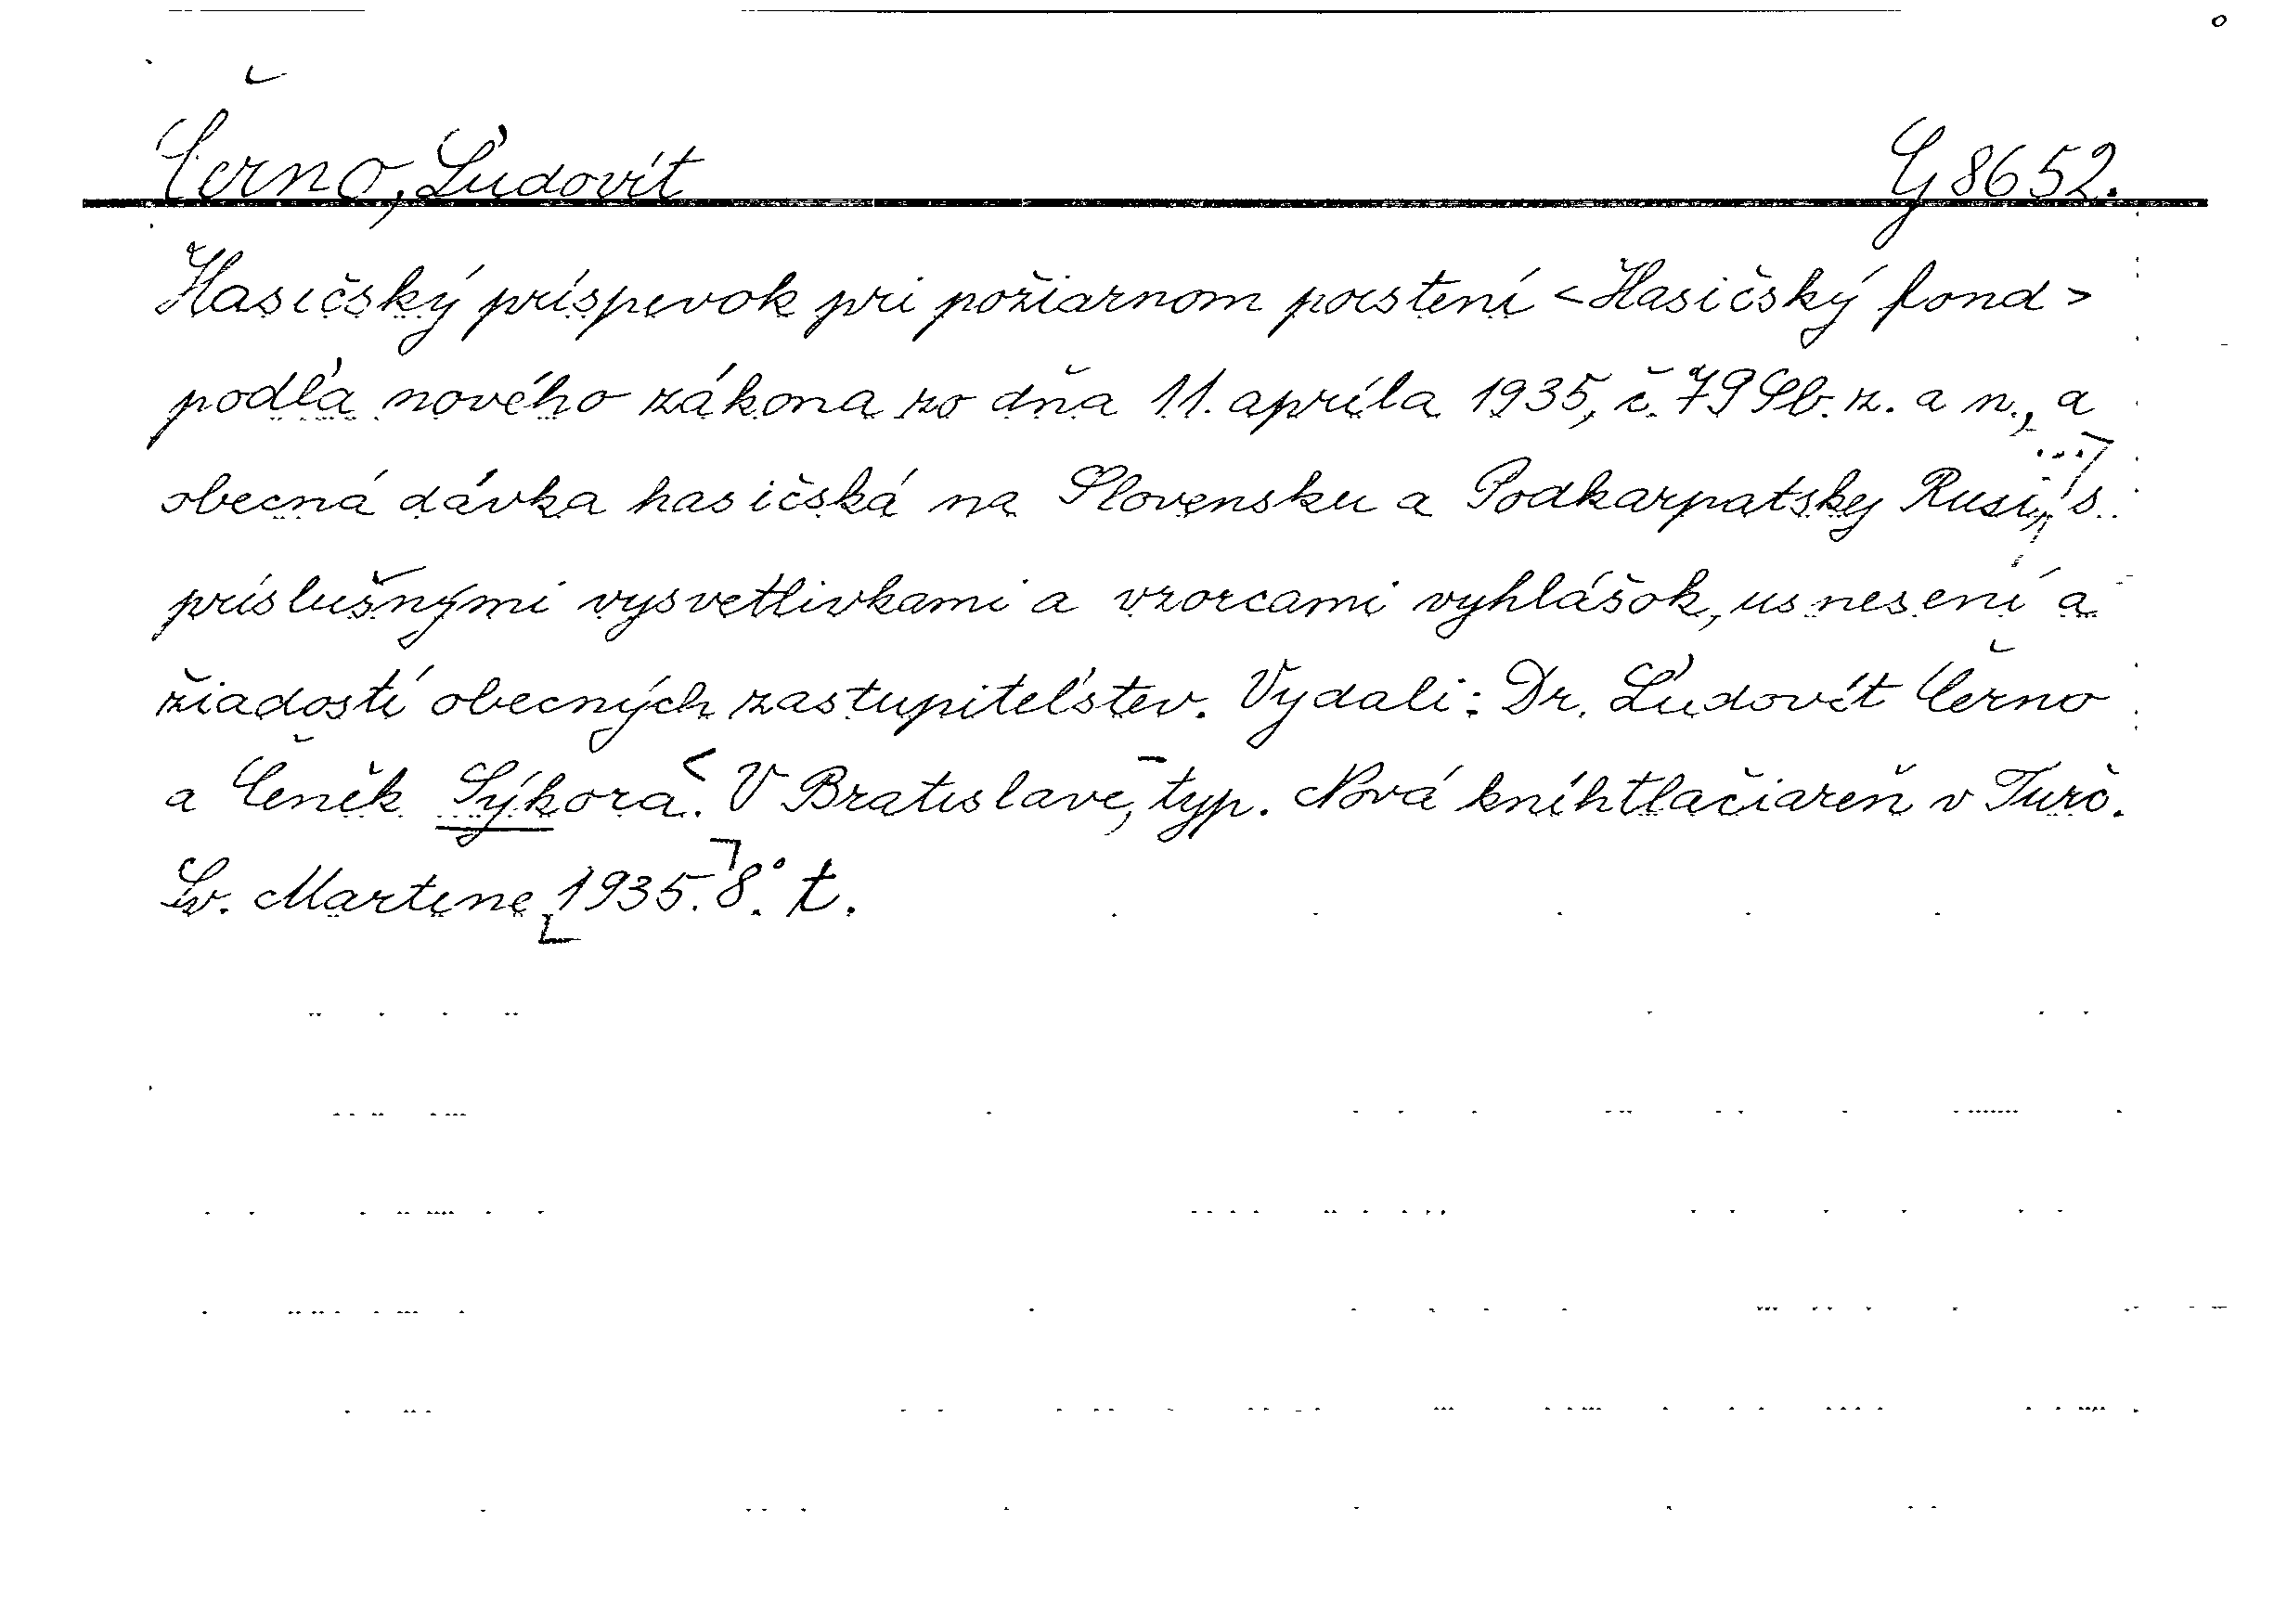 Černo, Ľudovít G 8652.
Hasičský príspevok pri požiarnom poistení <Hasičský fond>
podľa nového zákona zo dňa 11. apríla 1935, č. 79 Sb. z. a n., a
obecná dávka hasičská na Slovensku a Podkarpatskej Rusi, s
príslušnými vysvetlivkami a vzorcami vyhlášok, usnesení a
žiadostí obecných zastupiteľstev. Vydali: Dr. Ľudovít Černo
a Čeněk Sýkora. V Bratislave, typ. Nová kníhtlačiareň v Turč.
Sv. Martine 1935. 8°. t.